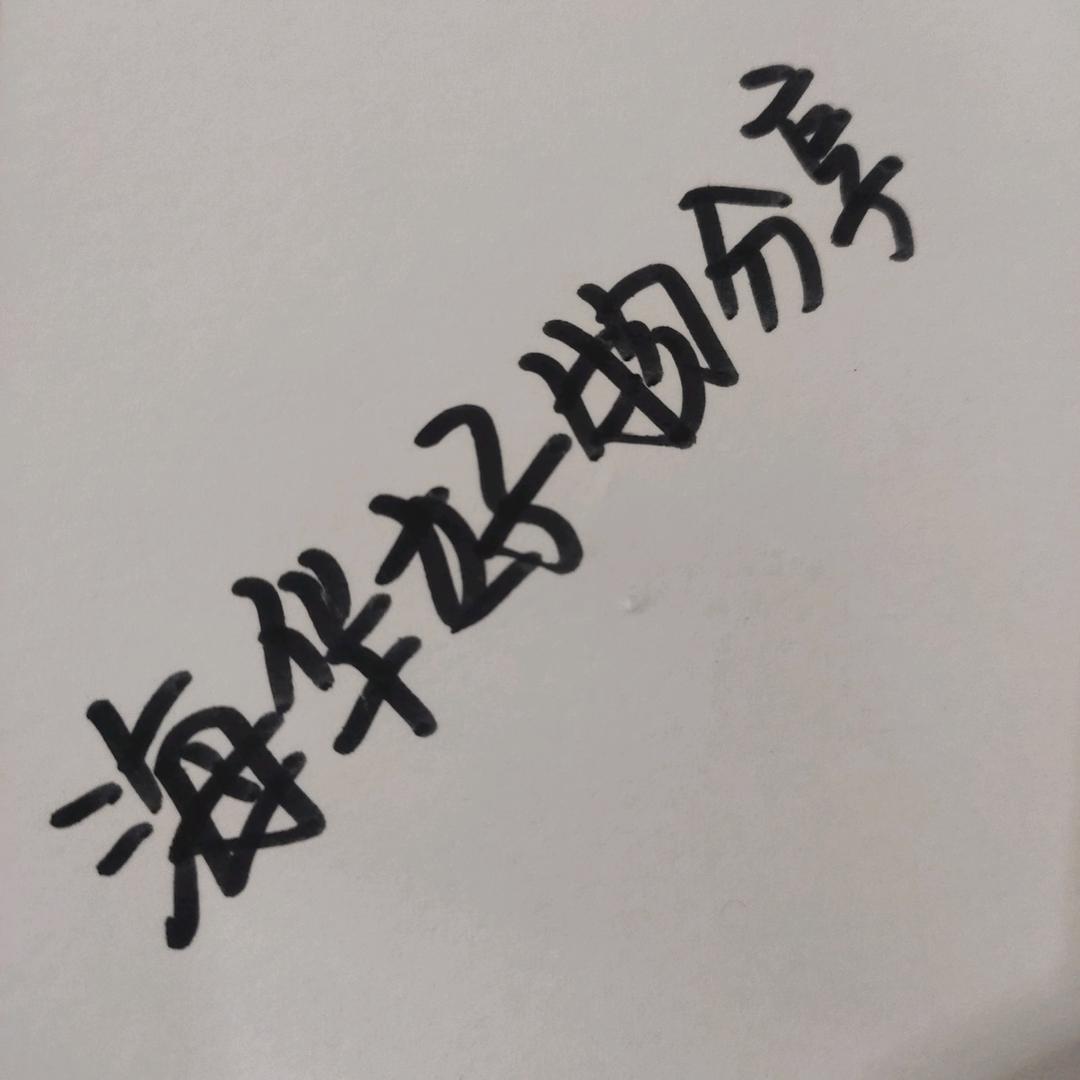 海华好物分享